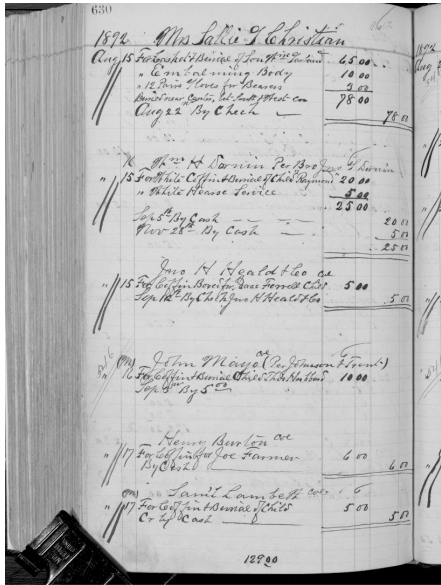 630
1892 Mrs Sallie G Christian
Aug 15 For Casket & Burial of 65 00
" Embalming Body 10 00
" 12 Pairs Gloves for Bearers 3 00
Buried near Center, Lot South & West Cor 78 00
Aug 22 By Check — 78 00
16 Wm H Darnin Per Bro Jno T Darnin
" 15 For White Coffin & Burial of Child Raymond 20 00
" White Hearse Service 5 00
25 00
Sep 5th By Cash 20 00
Nov 28th By Cash 5 00
25 00
Jno H Heald & Co col
" 15 For Coffin Box for Farrell Child 5 00
Sep 12th By Check Jno H Heald & Co 5 00
John Mayo col (Per Johnson & Trent)
" 16 For Coffin & Burial Child Husband 10 00
Sep By 5 00
Henry Burton col
" 17 For Coffin for Joe Farmer 6 00
By Cash 6 00
Saml Lambeth col
" 17 For Coffin & Burial of Child 5 00
Cr by Cash 5 00
129 00
1892
Aug